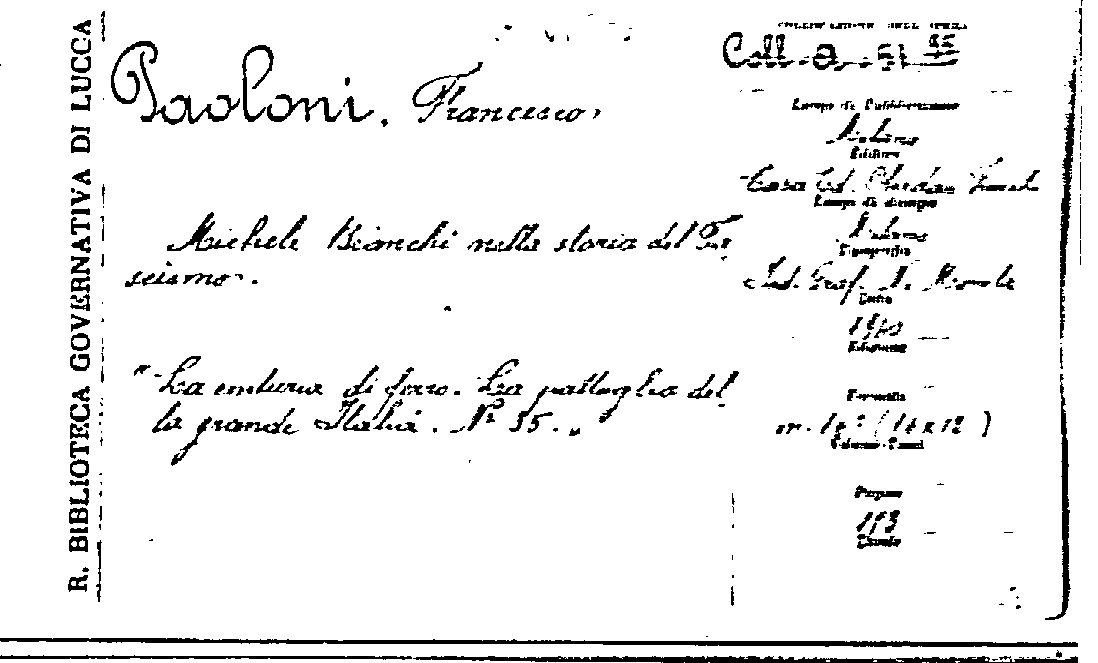 R. BIBLIOTECA GOVERNATIVA DI LUCCA
Paoloni, Francesco.
Michele Bianchi nella storia del Fa
scismo.
"La centuria di ferro. La pattuglia del
la grande Italia. N° 55."
Coll. 51
Luogo di Pubblicazione
Milano
Editore
Casa Ed.
Luogo di stampa
Milano
Tipografia
Ind. Graf. N. Moneta
Data
Edizione
Formato
in-16° (16x12)
Pagine
Tavole